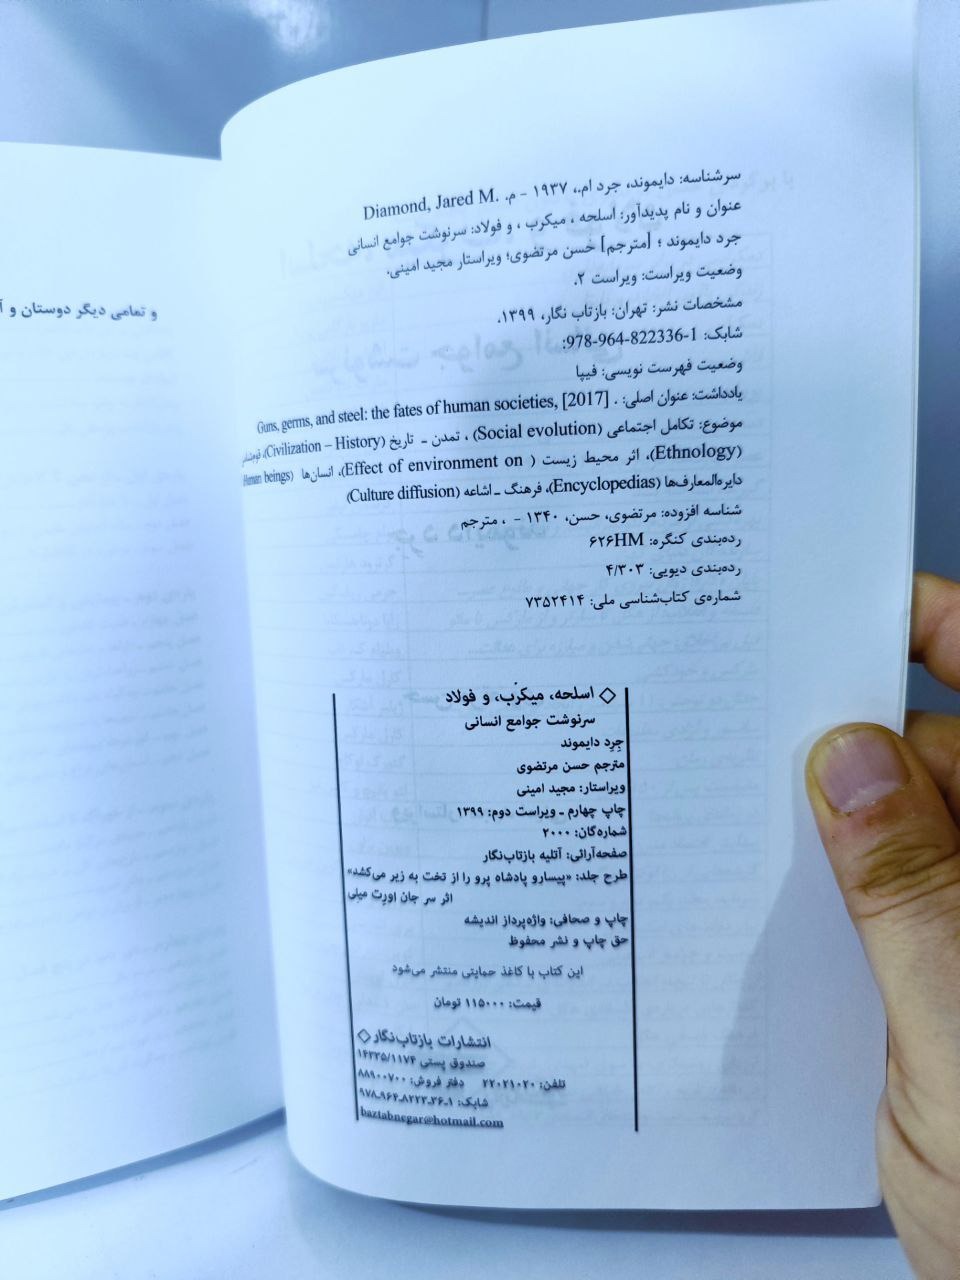 و تمامی دیگر دوستان و
سرشناسه: دایموند، جرد ام.، ۱۹۳۷ - م. Diamond, Jared M.
عنوان و نام پدیدآور: اسلحه ، میکرب ، و فولاد: سرنوشت جوامع انسانی
جرد دایموند ؛ [مترجم] حسن مرتضوی؛ ویراستار مجید امینی.
وضعیت ویراست: ویراست ۲.
مشخصات نشر: تهران: بازتاب نگار، ۱۳۹۹.
شابک: 978-964-822336-1:
وضعیت فهرست نویسی: فیپا
یادداشت: عنوان اصلی: . Guns, germs, and steel: the fates of human societies, [2017]
موضوع: تکامل اجتماعی (Social evolution) ، تمدن ـ تاریخ (Civilization – History)،
(Ethnology)، اثر محیط زیست ( Effect of environment on)، انسان‌ها (Human beings)
دایره‌المعارف‌ها (Encyclopedias)، فرهنگ ـ اشاعه (Culture diffusion)
شناسه افزوده: مرتضوی، حسن، ۱۳۴۰ - ، مترجم
رده‌بندی کنگره: ۶۲۶HM
رده‌بندی دیویی: ۴/۳۰۳
شماره‌ی کتاب‌شناسی ملی: ۷۳۵۲۴۱۴
اسلحه، میکرب، و فولاد
سرنوشت جوامع انسانی
جرد دایموند
مترجم حسن مرتضوی
ویراستار: مجید امینی
چاپ چهارم ـ ویراست دوم: ۱۳۹۹
شماره‌گان: ۲۰۰۰
صفحه‌آرائی: آتلیه بازتاب‌نگار
طرح جلد: «پیسارو پادشاه پرو را از تخت به زیر می‌کشد»
اثر سر جان اورت میلی
چاپ و صحافی: واژه‌پرداز اندیشه
حق چاپ و نشر محفوظ
این کتاب با کاغذ حمایتی منتشر می‌شود
قیمت: ۱۱۵۰۰۰ تومان
انتشارات بازتاب‌نگار
صندوق پستی ۱۴۳۳۵/۱۱۷۴
تلفن: ۲۲۰۲۱۰۲۰ دفتر فروش: ۸۸۹۰۰۷۰۰
شابک: ۱ـ۳۶ـ۸۲۲۳ـ۹۶۴ـ۹۷۸
baztabnegar@hotmail.com